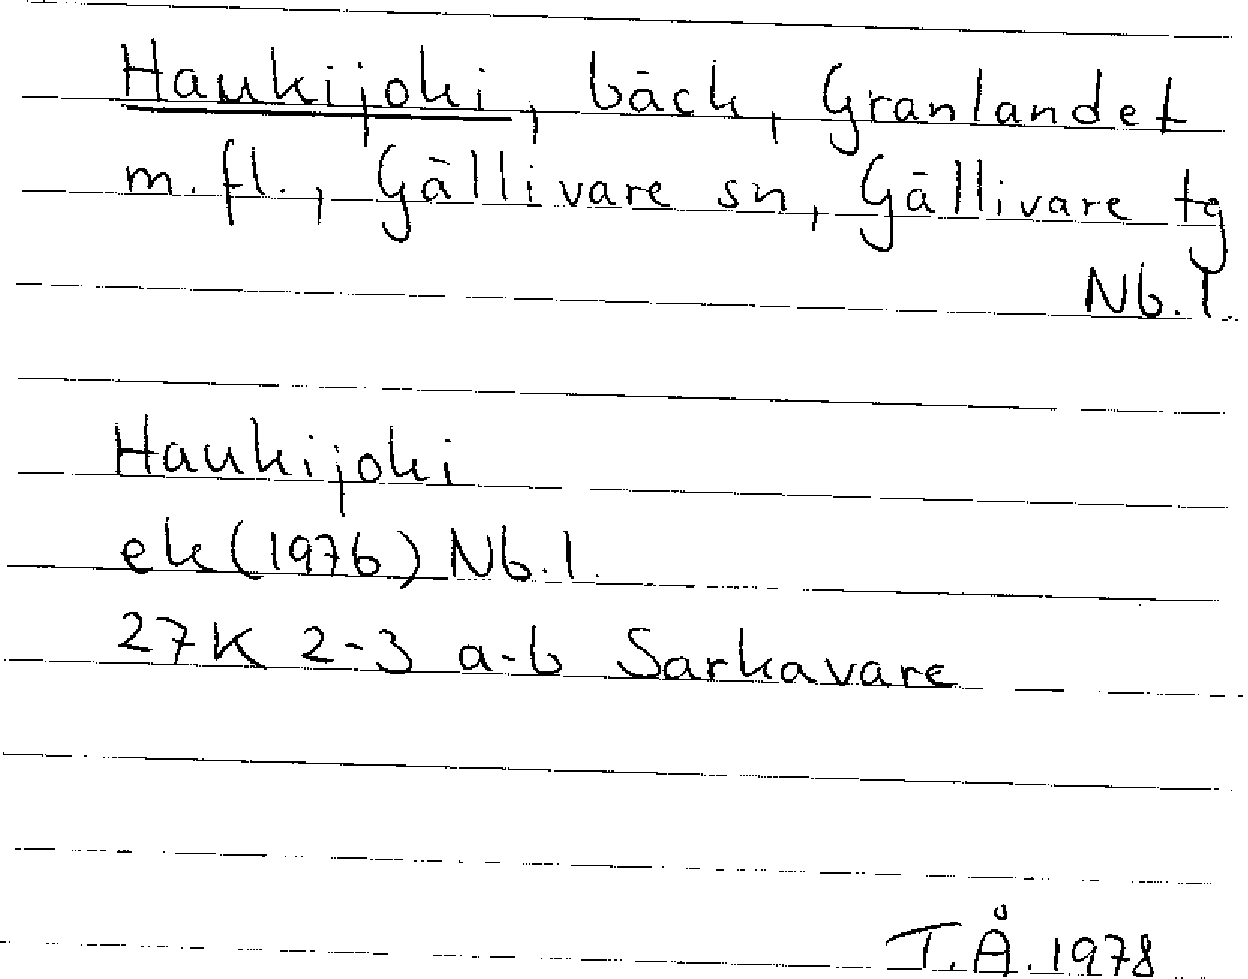 Haukijoki, bäck, Granlandet
m. fl., Gällivare sn, Gällivare tg
Nb. l.
Haukijoki
ek (1976) Nb. l.
27K 2-3 a-b Sarkavare
T.Å. 1978